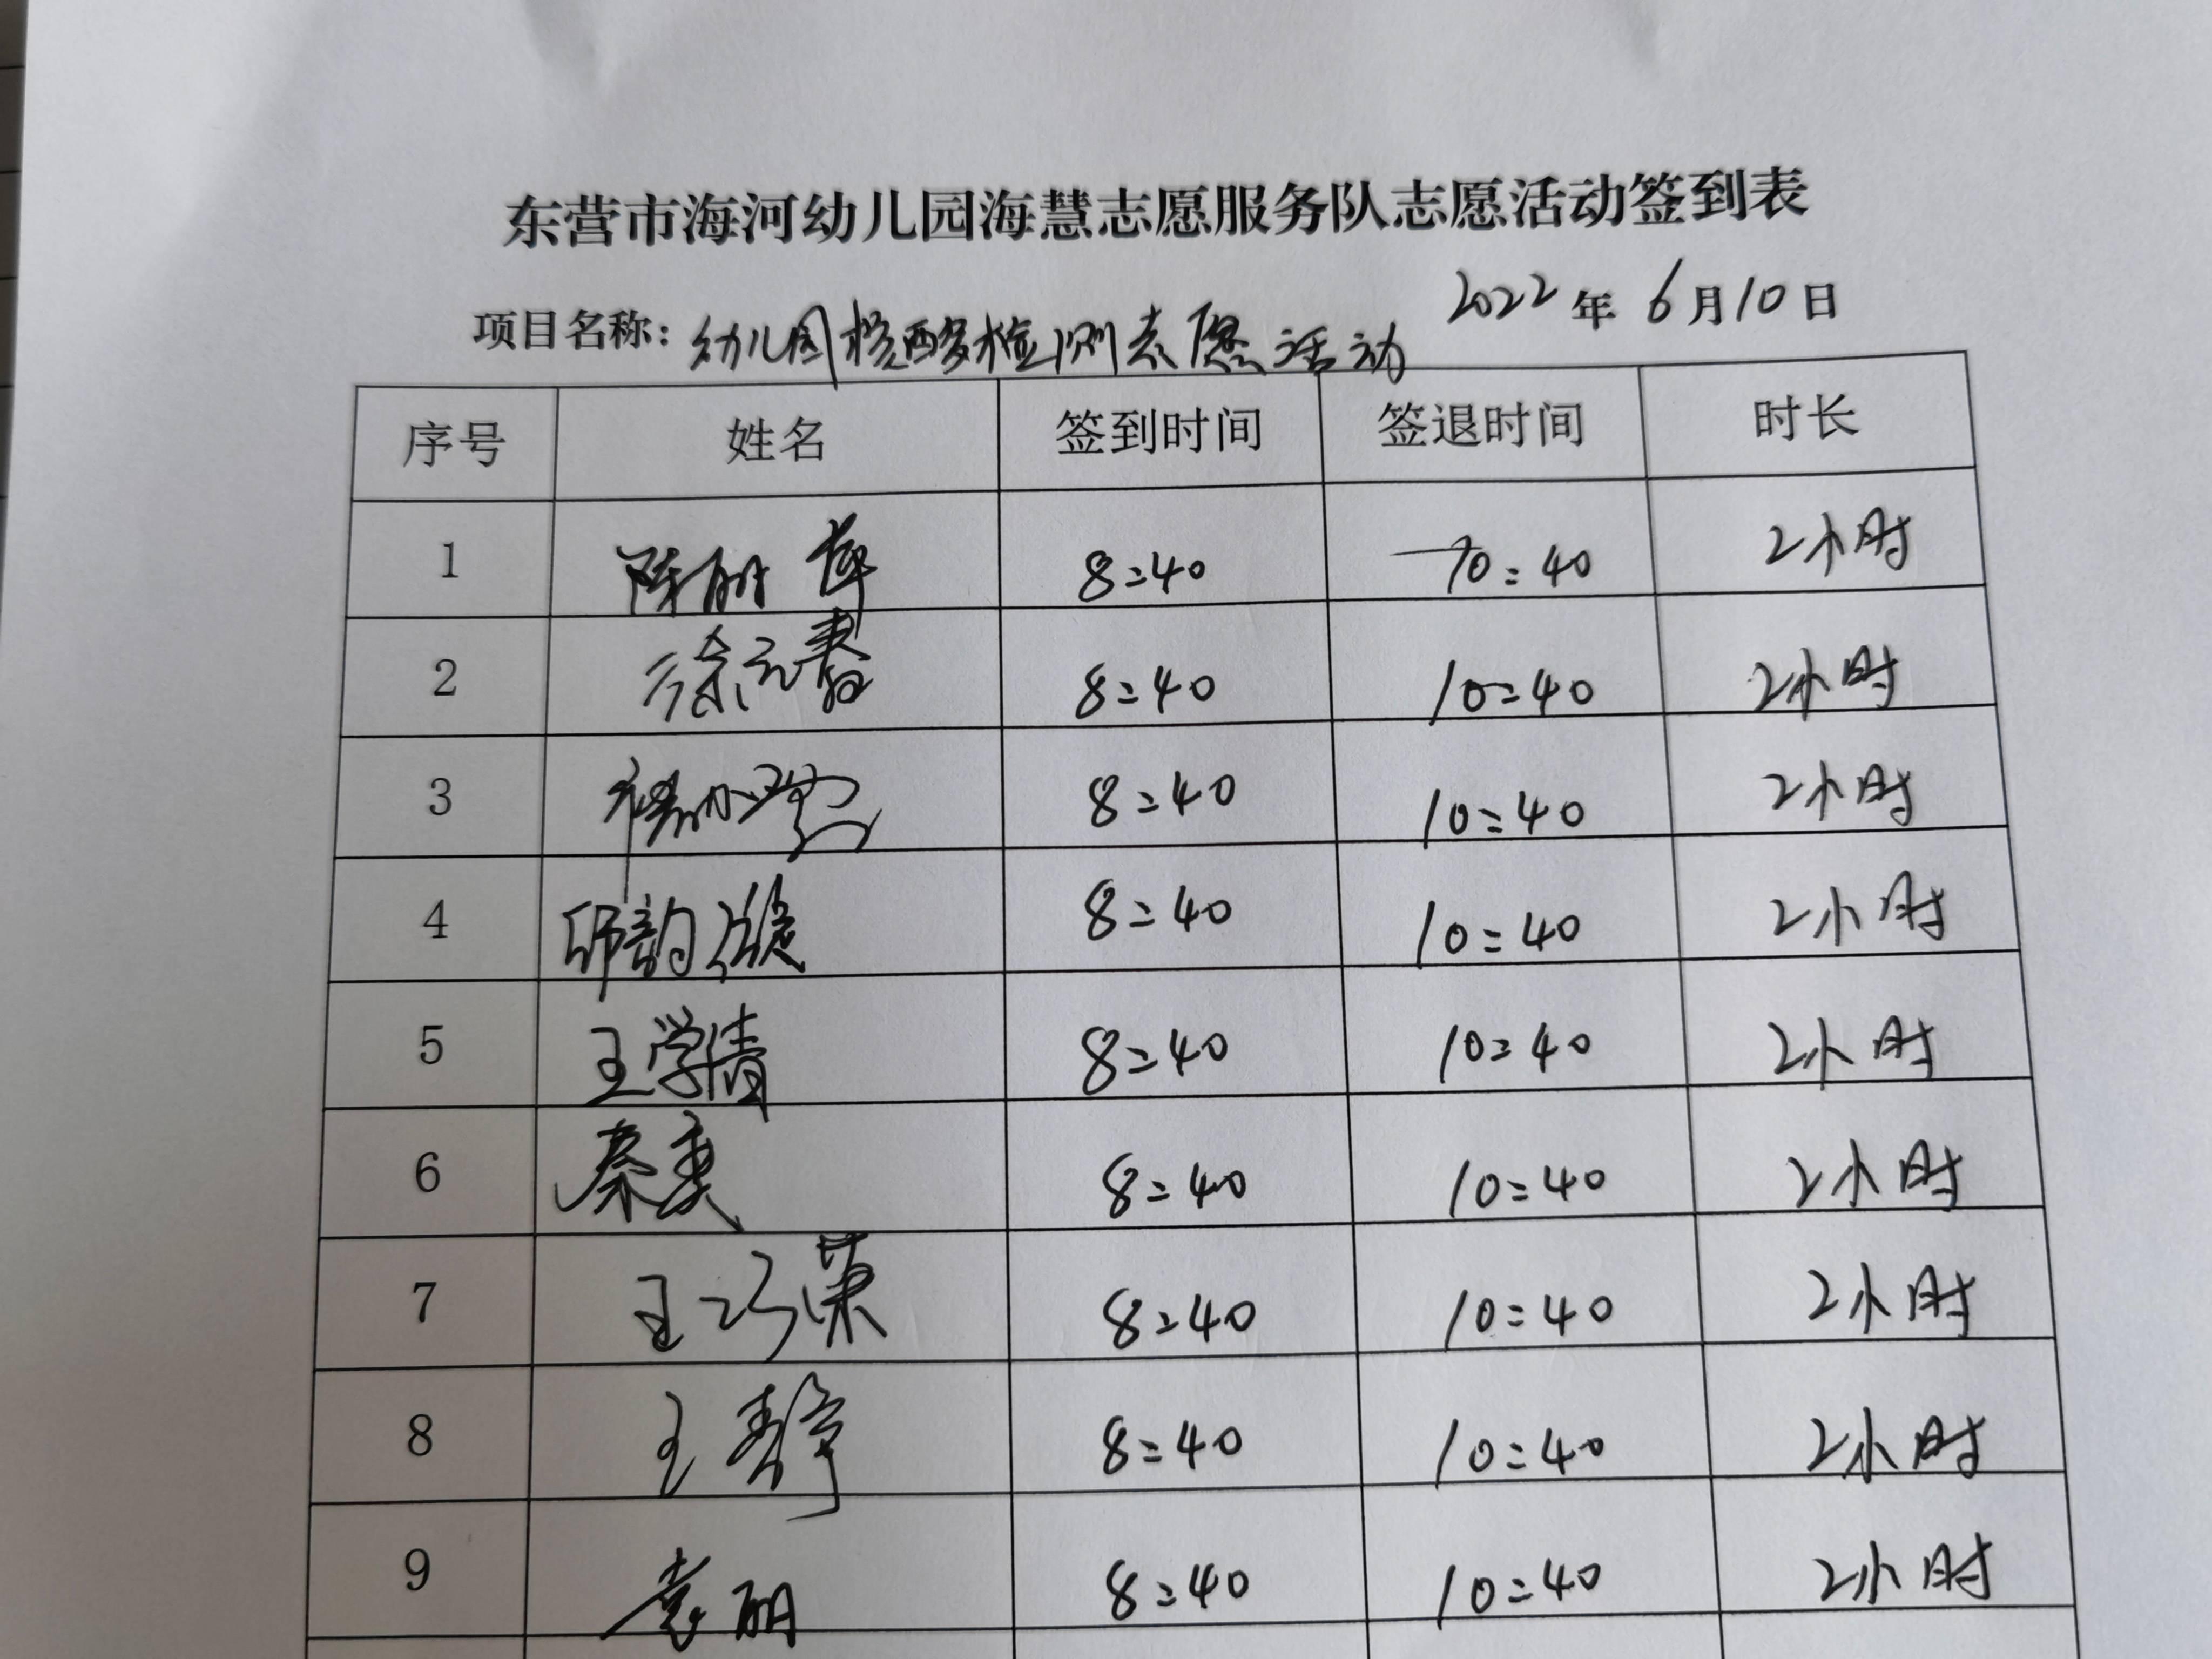 东营市海河幼儿园海慧志愿服务队志愿活动签到表
项目名称：幼儿园核酸检测志愿活动 2022年6月10日
序号 姓名 签到时间 签退时间 时长
1 陈丽萍 8:40 10:40 2小时
2 徐元春 8:40 10:40 2小时
3 8:40 10:40 2小时
4 8:40 10:40 2小时
5 王学倩 8:40 10:40 2小时
6 秦 8:40 10:40 2小时
7 王巧荣 8:40 10:40 2小时
8 王静 8:40 10:40 2小时
9 袁丽 8:40 10:40 2小时